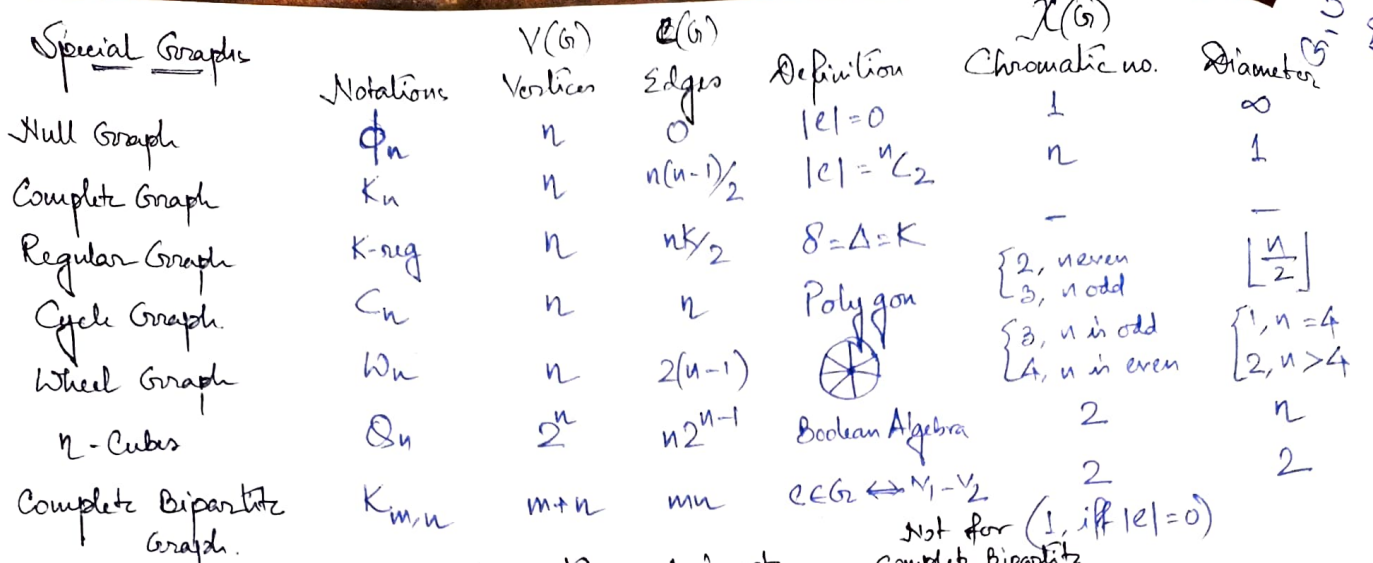 Special Graphs Notations V(G) Vertices e(G) Edges Definition χ(G) Chromatic no. Diameter
Null Graph ϕn n 0 |e|=0 1 ∞
Complete Graph Kn n n(n-1)/2 |e| = ⁿC₂ n 1
Regular Graph K-reg n nK/2 δ=Δ=K - -
Cycle Graph. Cn n n Polygon {2, n even 3, n odd ⌊n/2⌋
Wheel Graph Wn n 2(n-1) {3, n is odd 4, n is even {1, n=4 2, n>4
n-Cubes Qn 2ⁿ n2ⁿ⁻¹ Boolean Algebra 2 n
Complete Bipartite Graph. Km,n m+n mn e∈G ⇔ V₁-V₂ 2 2
Not for (1, iff |e|=0)
Complete Bipartite